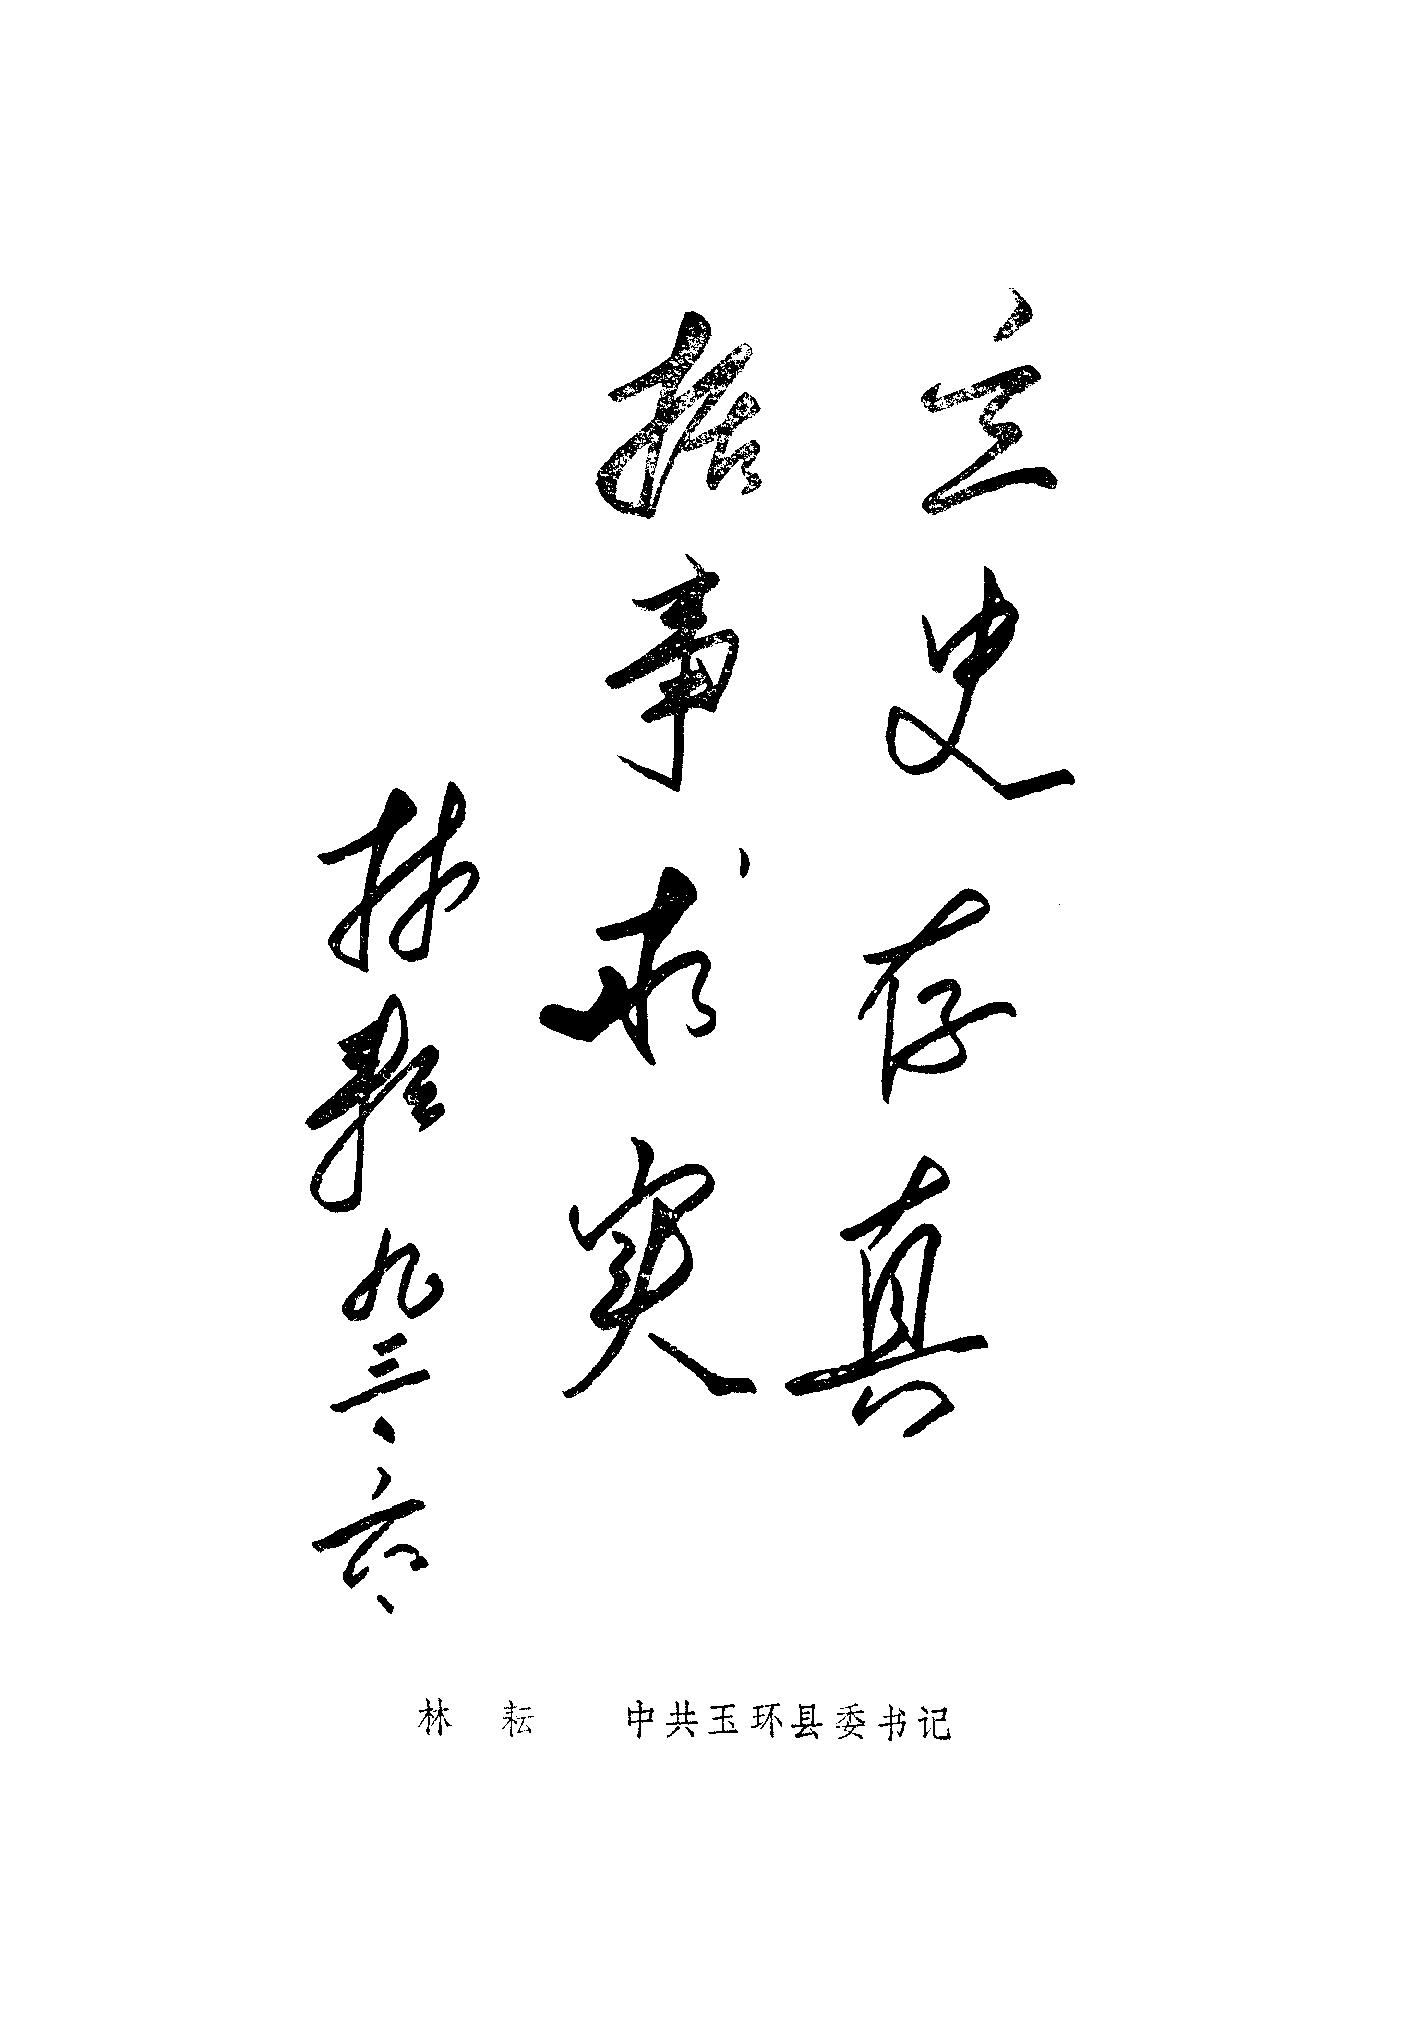 立史存真
据事求实
林耘 九三、六、
林 耘 中共玉环县委书记